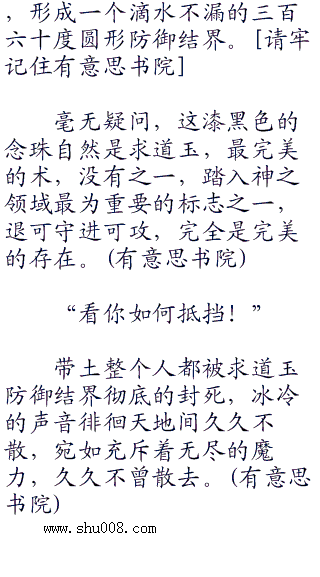 ，形成一个滴水不漏的三百
六十度圆形防御结界。[请牢
记住有意思书院]
毫无疑问，这漆黑色的
念珠自然是求道玉，最完美
的术，没有之一，踏入神之
领域最为重要的标志之一，
退可守进可攻，完全是完美
的存在。(有意思书院)
“看你如何抵挡！”
带土整个人都被求道玉
防御结界彻底的封死，冰冷
的声音徘徊天地间久久不
散，宛如充斥着无尽的魔
力，久久不曾散去。(有意思
书院)
www.shu008.com